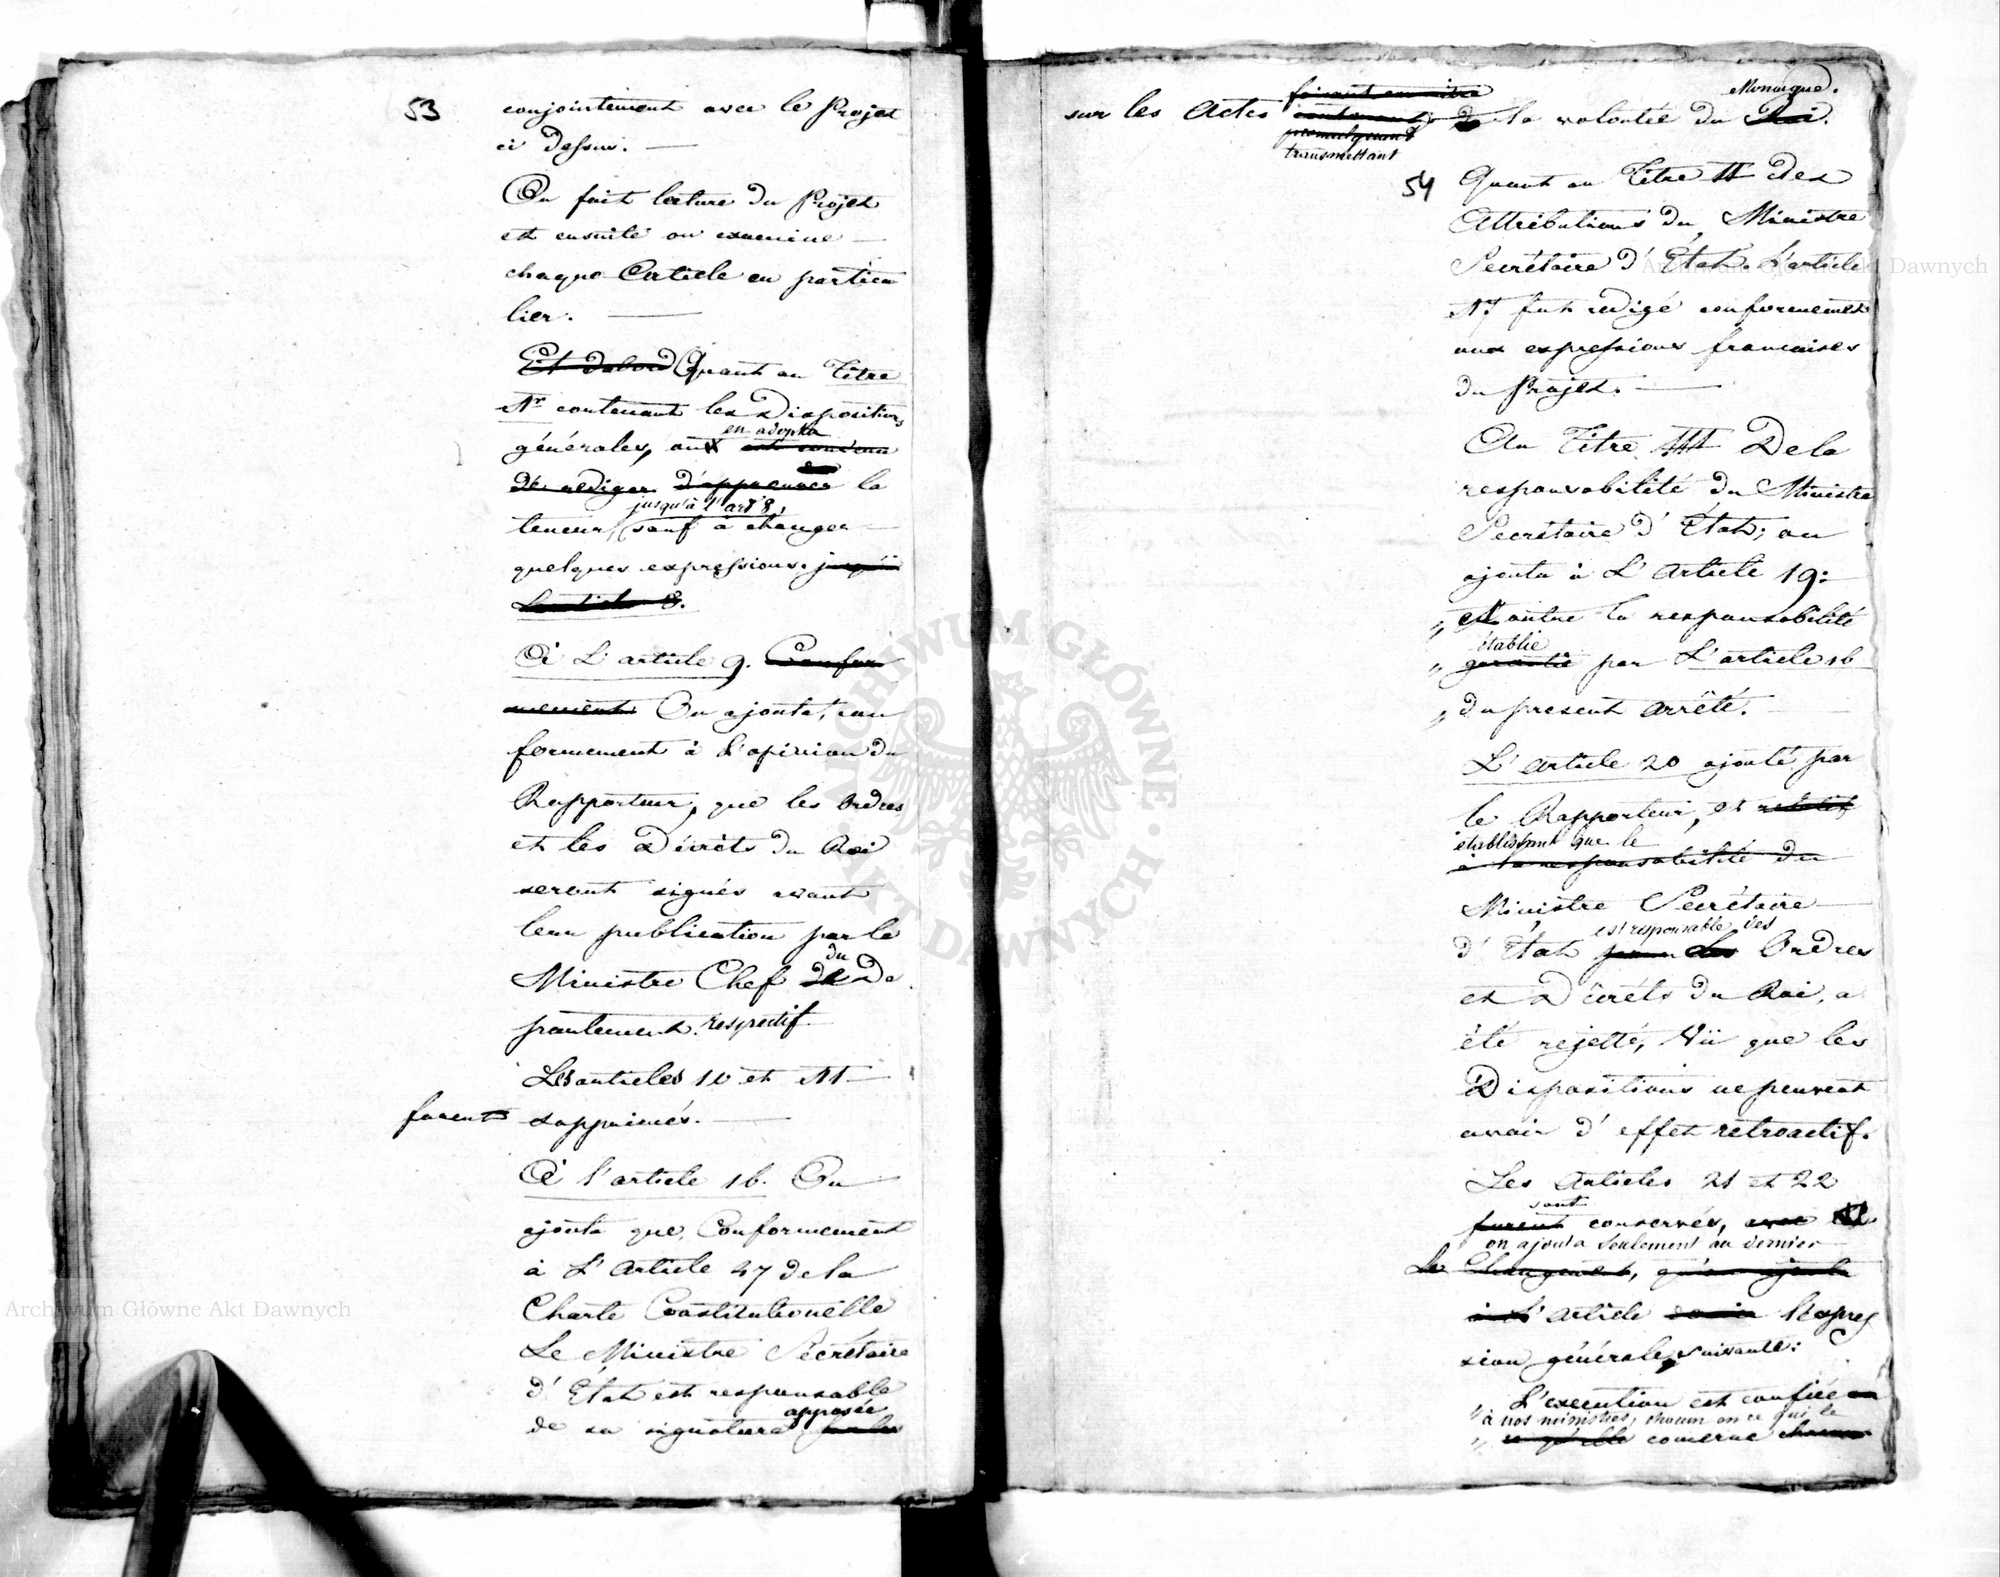 53
conjointement avec le Projet
ci dessus. —
On fait lecture du Projet
et ensuite on examine —
chaque Article en particu
lier. —
Et dabord Quant au Titre
Ir contenant les Dispositions
générales, on en adopta est convenu
de rediger d'approuver la
teneur jusqu'à l'art 8, (sauf à changer
quelques expressions. jusqu'à
L'article 8.
À L'article 9. Confor
mement On ajouta, con
formement à l'opinion du
Rapporteur, que les Ordres
et les Décrèts du Roi
seront signés avant
leur publication par le
Ministre Chef de du De
partement respectif.
Les articles 10 et 11
furent supprimés. —
À l'article 16. On
ajouta que, Conformement
à L'Article 47 de la
Charte Constitutionelle
Le Ministre Sécrétaire
d'État est responsable
de sa signature apposée
sur les Actes transmettant la volonté du Roi. Monarque.
promulguant
54
Quant au Titre II des
Attributions du Ministre
Secrétaire d'État. L'article
fut redigé conformement
aux expressions francaises
du Projet. —
Au Titre III De la
responsabilité du Ministre
Secrétaire d'État; on
ajouta à L'Article 19:
„ outre la responsabilité
„ établie garantie par L'article 16
„ du present Arrêté. —
L'Article 20 ajouté par
le Rapporteur, et relatif
établissant que le
à la responsabilité du
Ministre Secrétaire —
d'État est responsable des pour les Ordres
et Décrèts du Roi, a
été rejetté, Vû que les
Dispositions ne peuvent
avoir d'effet retroactif.
Les Articles 21 et 22
sont furent conservés, avec
on ajouta seulement au dernier
Le Changement, qu'on ajouta
à L'article l'expres
sion générale, suivante:
„ L'execution est confiée
„ à nos ministres, chacun en ce qui le
„ ce qu'elle concerne chacun
ARCHIWUM GŁÓWNE · AKT DAWNYCH ·
Archiwum Główne Akt Dawnych
Archiwum Główne Akt Dawnych